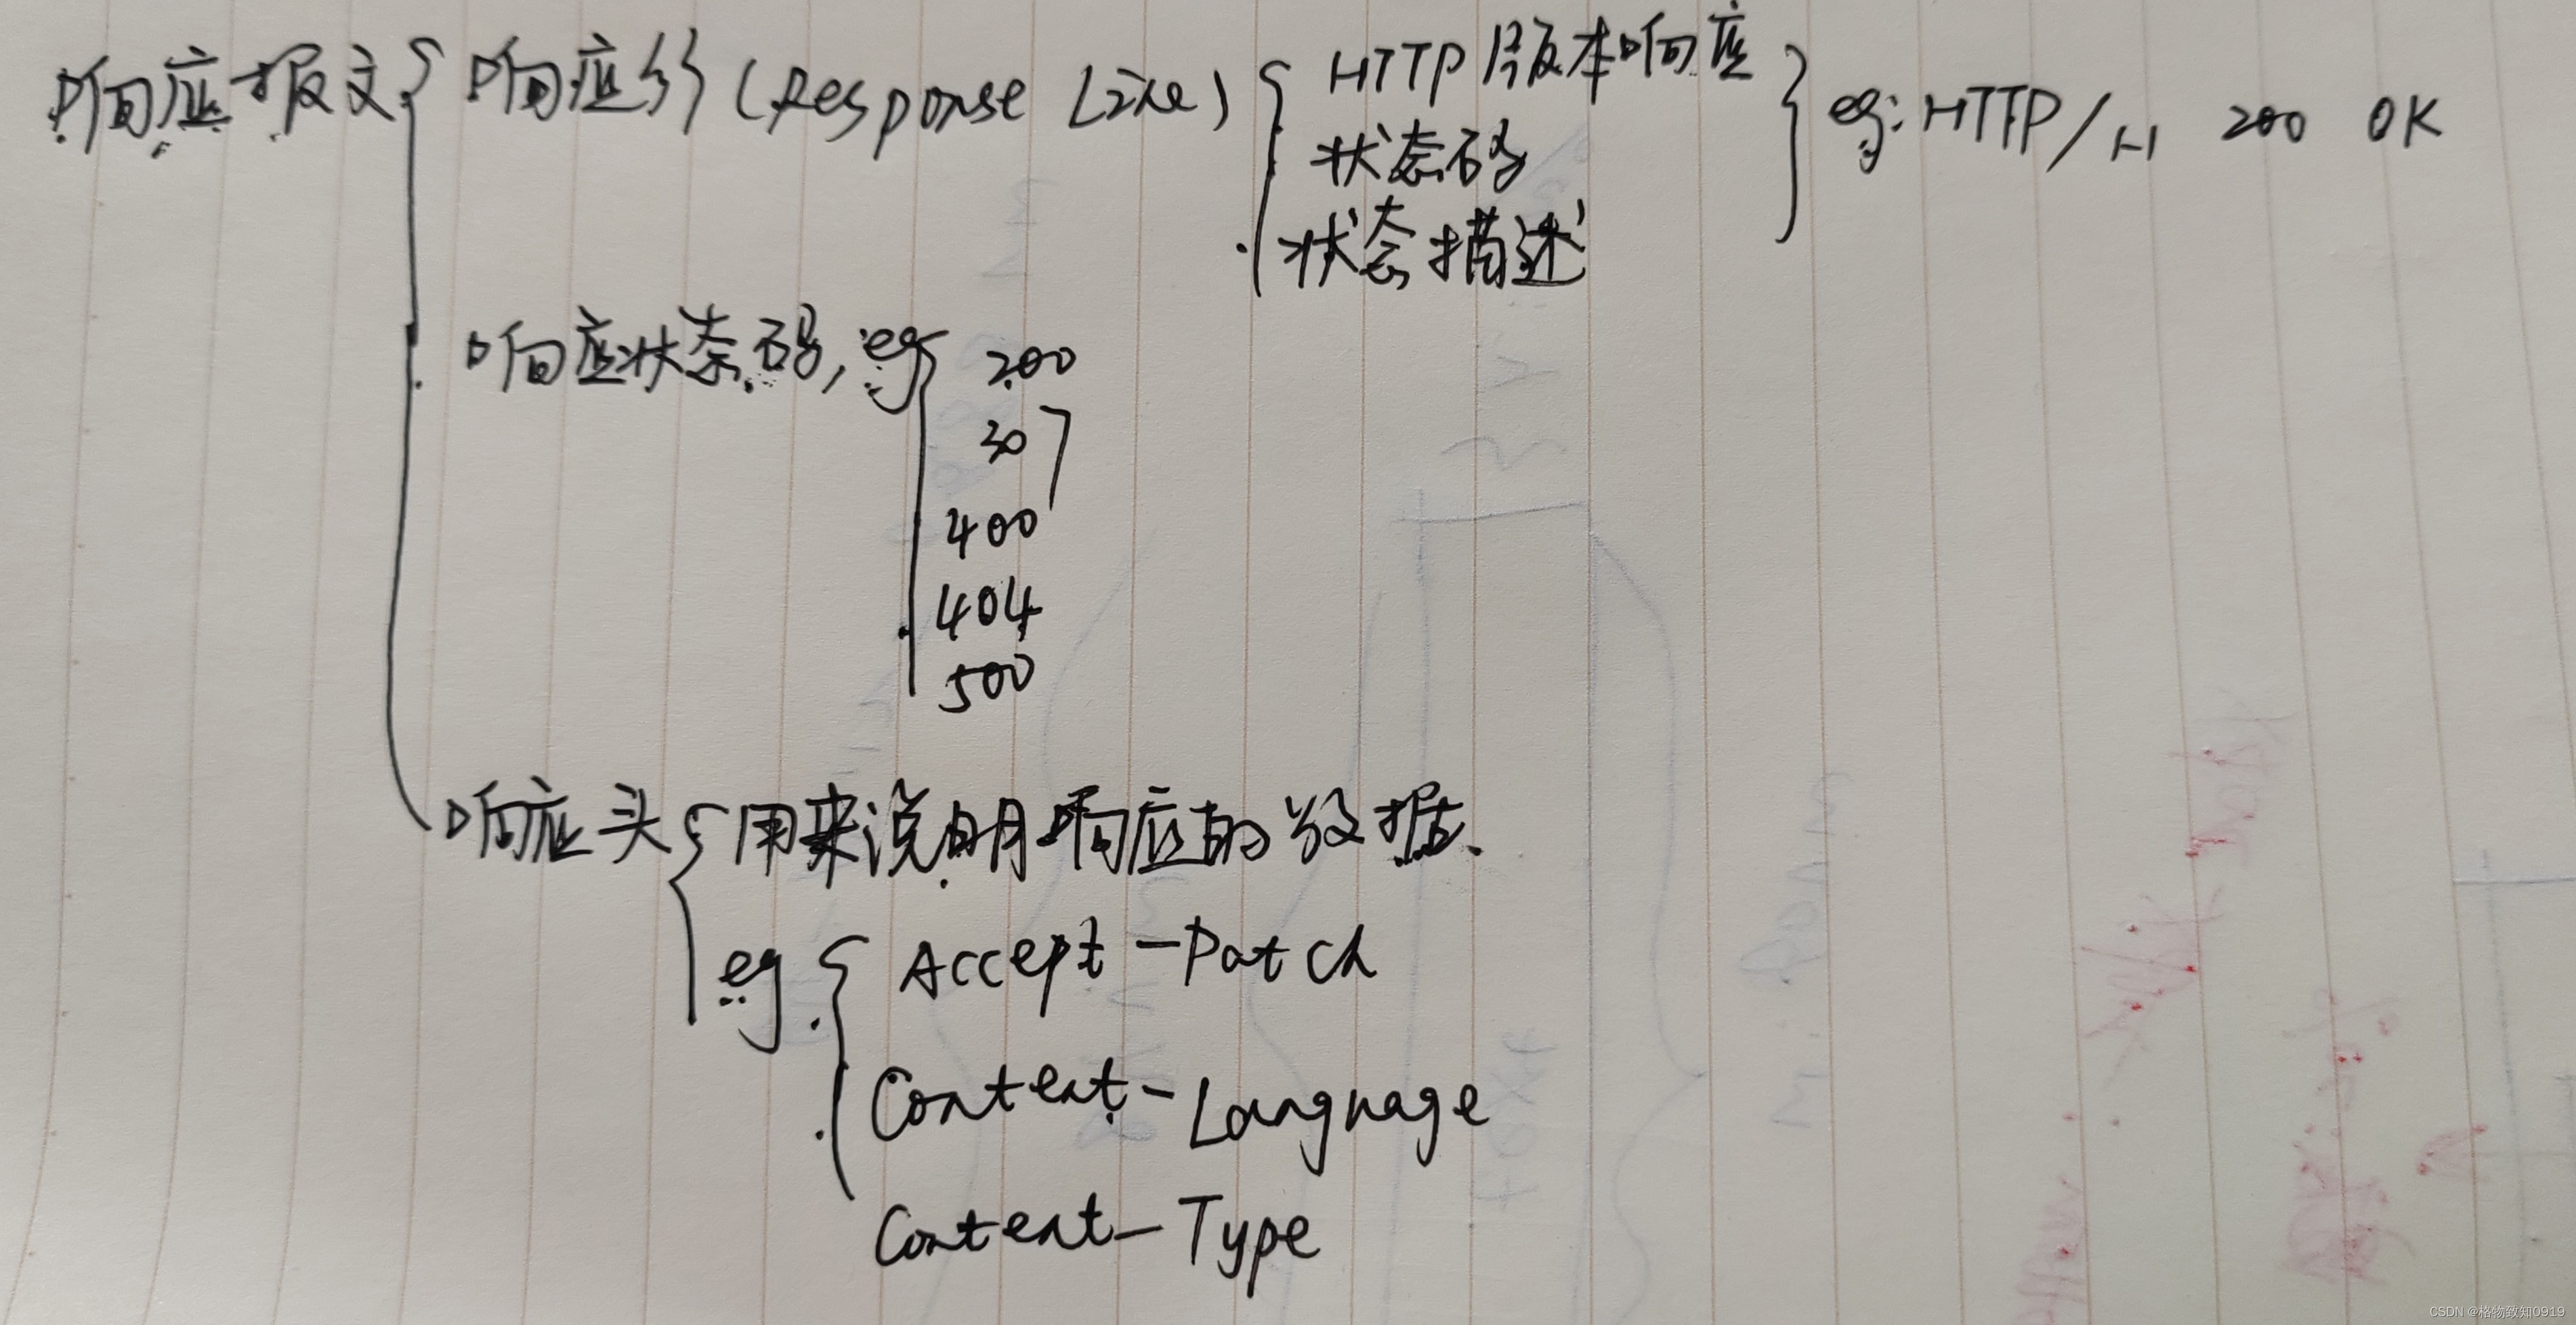 响应报文 响应行 (Response Line) HTTP版本响应
状态码
状态描述
eg: HTTP/1.1 200 OK
响应状态码, eg 200
307
400
404
500
响应头 用来说明响应的数据
eg Accept-Patch
Content-Language
Content-Type
CSDN @格物致知0919